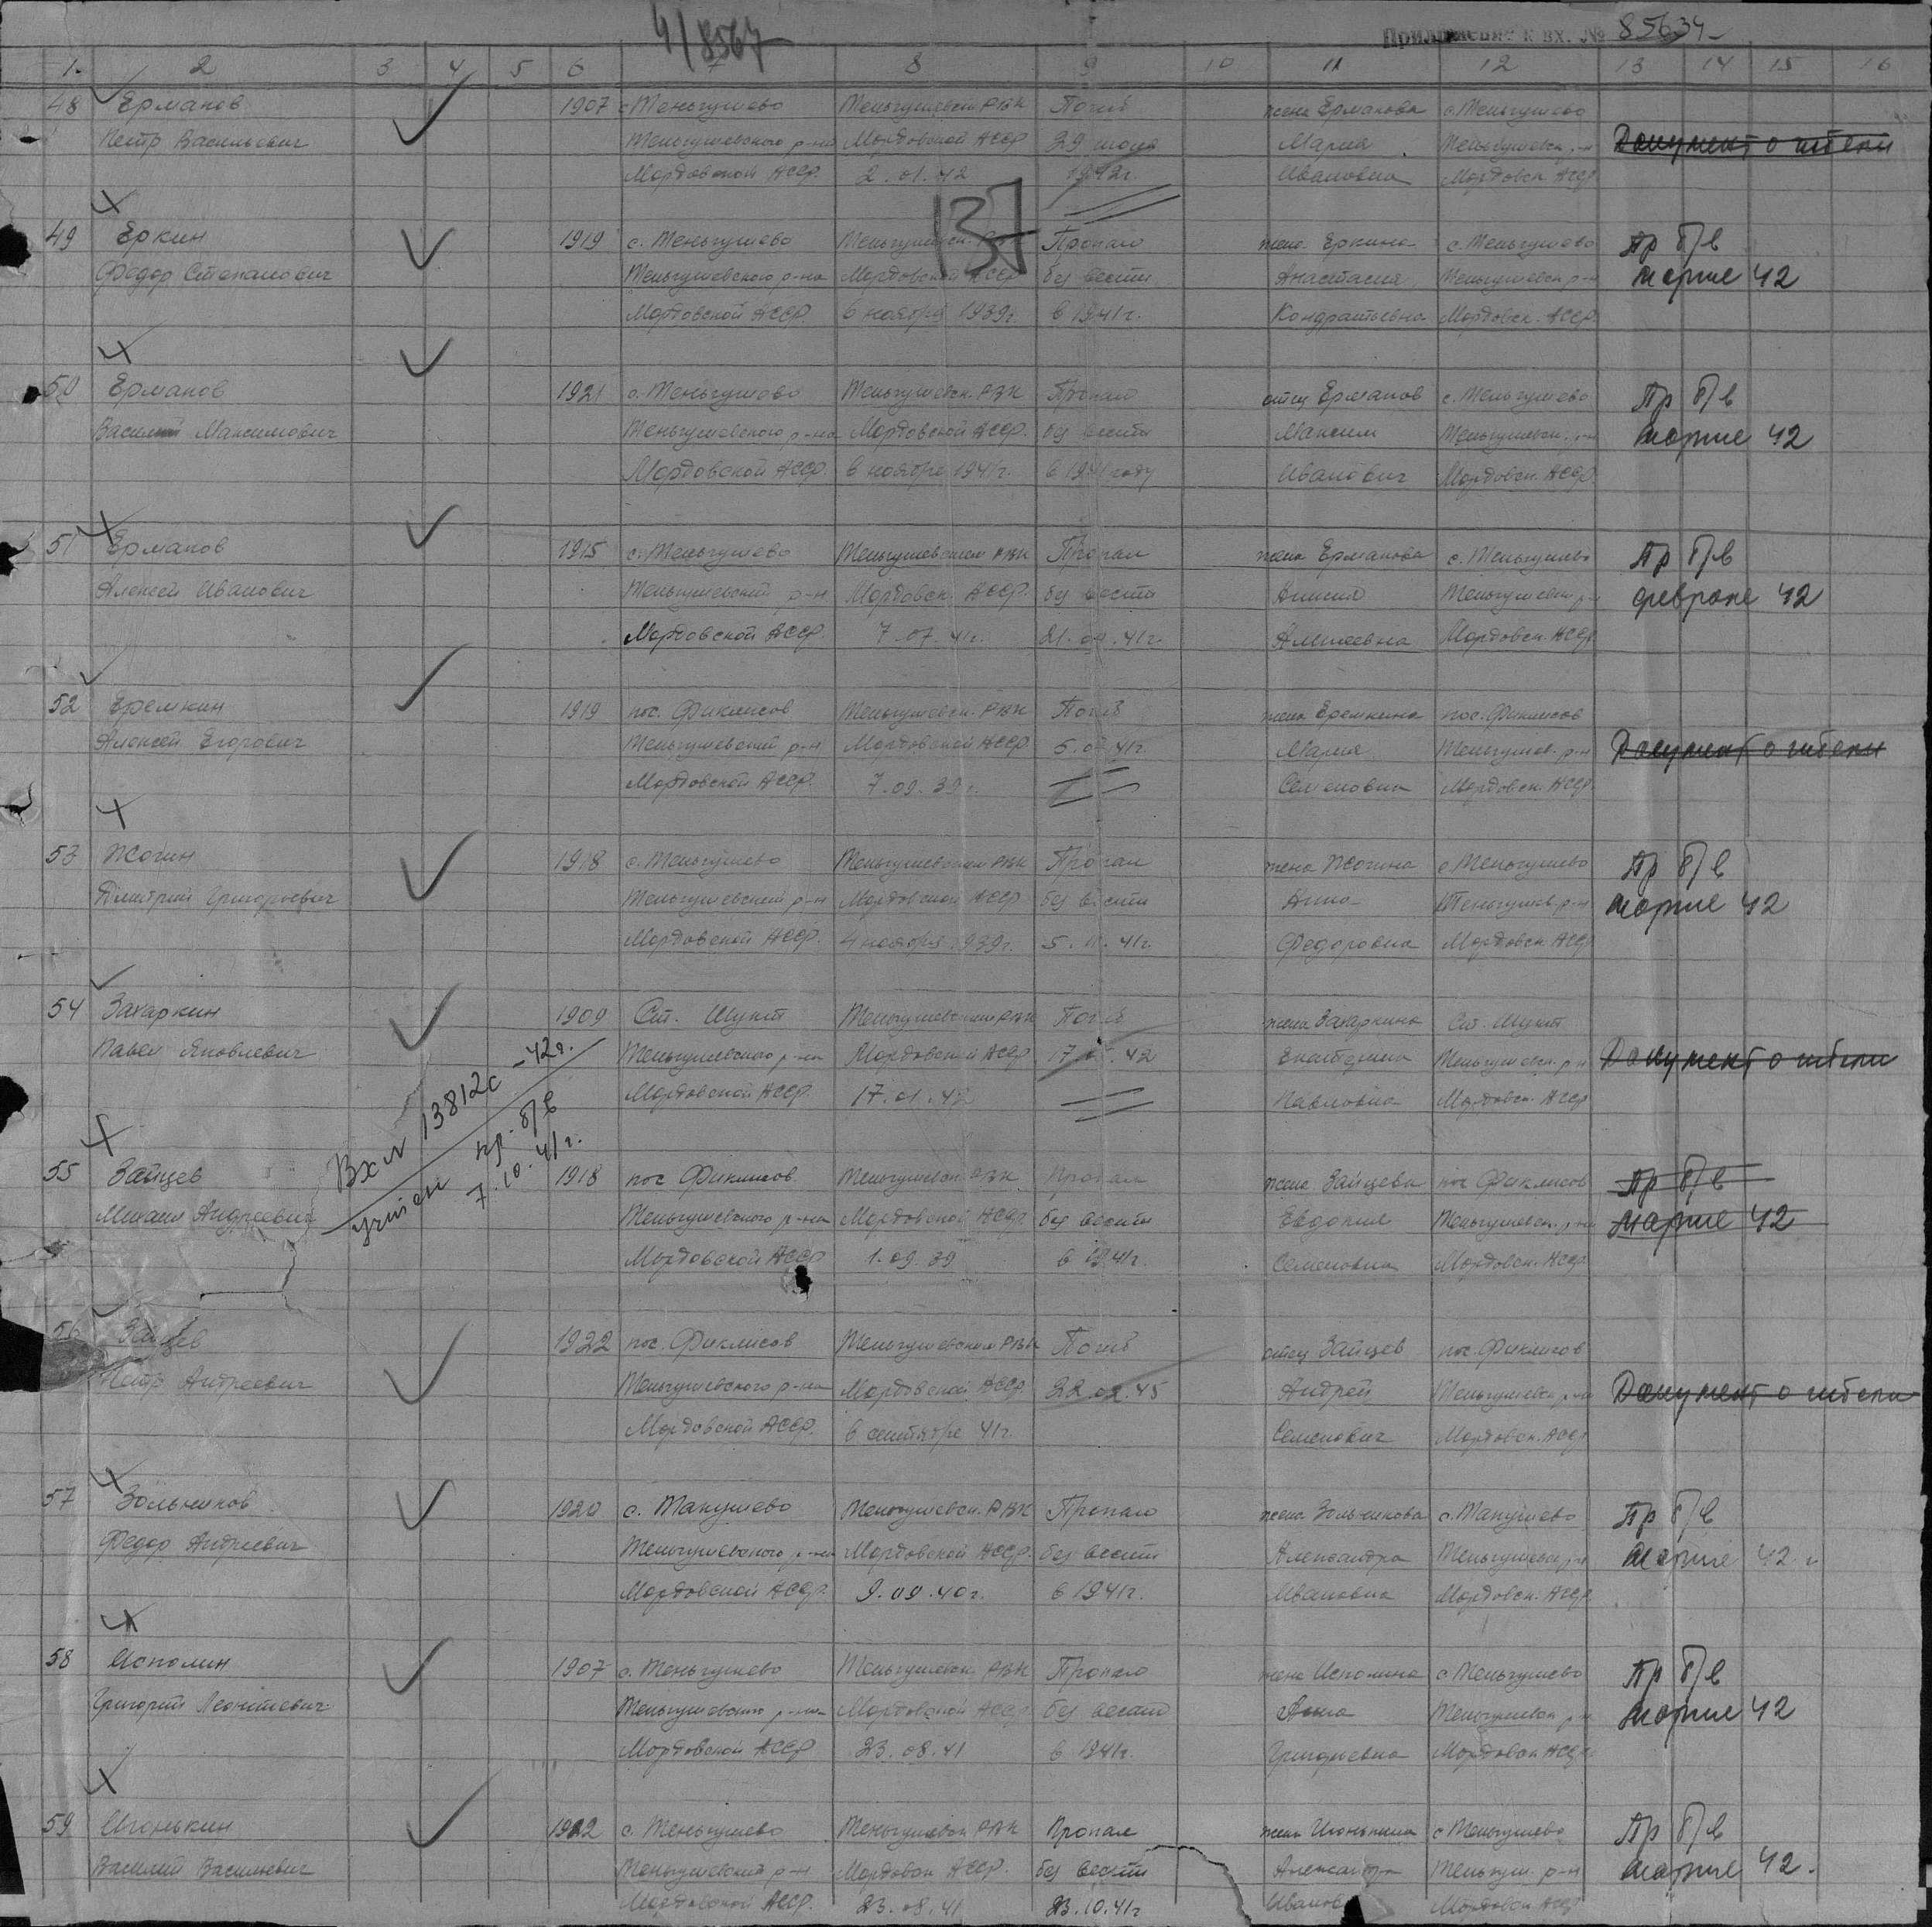 4/8567
Приложение к вх. № 85634
1. 2 3 4 5 6 7 8 9 10 11 12 13 14 15 16
137
48 Ермаков 1907 с. Теньгушево Теньгушевск. РВК Погиб жена Ермакова с. Теньгушево
Петр Васильевич Теньгушевского р-на Мордовской АССР 29 июля Мария Теньгушевск. р-н Документ о гибели
Мордовской АССР. 2.01.42 1942г. Ивановна Мордовск. АССР
49 Еркин 1919 с. Теньгушево Теньгушевск. Пропал жена Еркина с. Теньгушево Пр б/в
Федор Степанович Теньгушевского р-на Мордовской АССР без вести Анастасия Теньгушевск р-н марте 42
Мордовской АССР. в ноября 1939г. в 1941г. Кондратьевна Мордовск. АССР.
50 Ермаков 1921 с. Теньгушево Теньгушевск. РВК Пропал отец Ермаков с. Теньгушево Пр б/в
Василий Максимович Теньгушевского р-на Мордовской АССР. без вести Максим Теньгушевск. р-н марте 42
Мордовской АССР. в ноябре 1941г. в 1941 году Иванович Мордовск. АССР.
51 Ермаков 1915 с. Теньгушево Теньгушевским РВК Пропал жена Ермакова с. Теньгушево Пр б/в
Алексей Иванович Теньгушевский р-н Мордовск. АССР. без вести Теньгушевск р-н феврале 42
Мордовской АССР. 7.07.41г. 21.09.41г. Мордовск. АССР
52 Еремкин 1919 пос. Фиклисов Теньгушевск. РВК Погиб жена Еремкина пос. Фиклисов
Алексей Егорович Теньгушевский р-н Мордовской АССР 41г. Мария Теньгушев. р-н Документ о гибели
Мордовской АССР. 7.09.39г. Семеновна Мордовск. АССР
53 Жогин 1918 с. Теньгушево Теньгушевским РВК Пропал жена Жогина с. Теньгушево Пр б/в
Дмитрий Григорьевич Теньгушевский р-н Мордовской АССР без вести Анна Теньгушев р-н марте 42
Мордовской АССР. 4 ноября 1939г. 5.11.41г. Федоровна Мордовск АССР
54 Захаркин 1909 Ст. Шукст Теньгушевским РВК Погиб жена Захаркина Ст. Шукст
Павел Яковлевич Теньгушевского р-на Мордовской АССР 42 Екатерина Теньгушевск. р-н Документ о гибели
Мордовской АССР. 17.01.42 Павловна Мордовск. АССР
Вх № 13812с -42г.
учтен пр. б/в
7.10.41г.
55 Зайцев 1918 пос Фиклисов. Теньгушевск. РВК Пропал жена Зайцева пос Фиклисов Пр б/в
Михаил Андреевич Теньгушевского р-на Мордовской АССР. без вести Евдокия Теньгушевск. р-н марте 42
Мордовской АССР 1.09.39 в 1941г. Семеновна Мордовск. АССР.
56 Зайцев 1922 пос. Фиклисов Теньгушевским РВК Погиб отец Зайцев пос. Фиклисов
Петр Андреевич Теньгушевского р-на Мордовской АССР 22.02.45 Андрей Теньгушевск р-н Документ о гибели
Мордовской АССР. в сентябре 41г. Семенович Мордовск. АССР
57 Зольников 1920 с. Такушево Теньгушевск. РВК Пропал жена Зольникова с. Такушево Пр б/в
Федор Андреевич Теньгушевского р-на Мордовской АССР. без вести Александра Теньгушевск р-н марте 42 г
Мордовской АССР. 9.09.40г. в 1941г. Ивановна Мордовск. АССР.
58 Исполин 1907 с. Теньгушево Теньгушевск. РВК Пропал жена Исполина с Теньгушево Пр б/в
Григорий Леонтиевич Теньгушевского р-на Мордовской АССР без вести Анна Теньгушевск р-н марте 42
Мордовской АССР 23.08.41 в 1941г. Григорьевна Мордовск АССР.
59 Игонькин с. Теньгушево Теньгушевск РВК Пропал жена Игонькина с Теньгушево Пр б/в
Василий Васильевич Теньгушевский р-н Мордовск АССР. без вести Александра Теньгуш. р-н марте 42.
Мордовской АССР. 23.08.41 23.10.41г Иванов Мордовск АССР